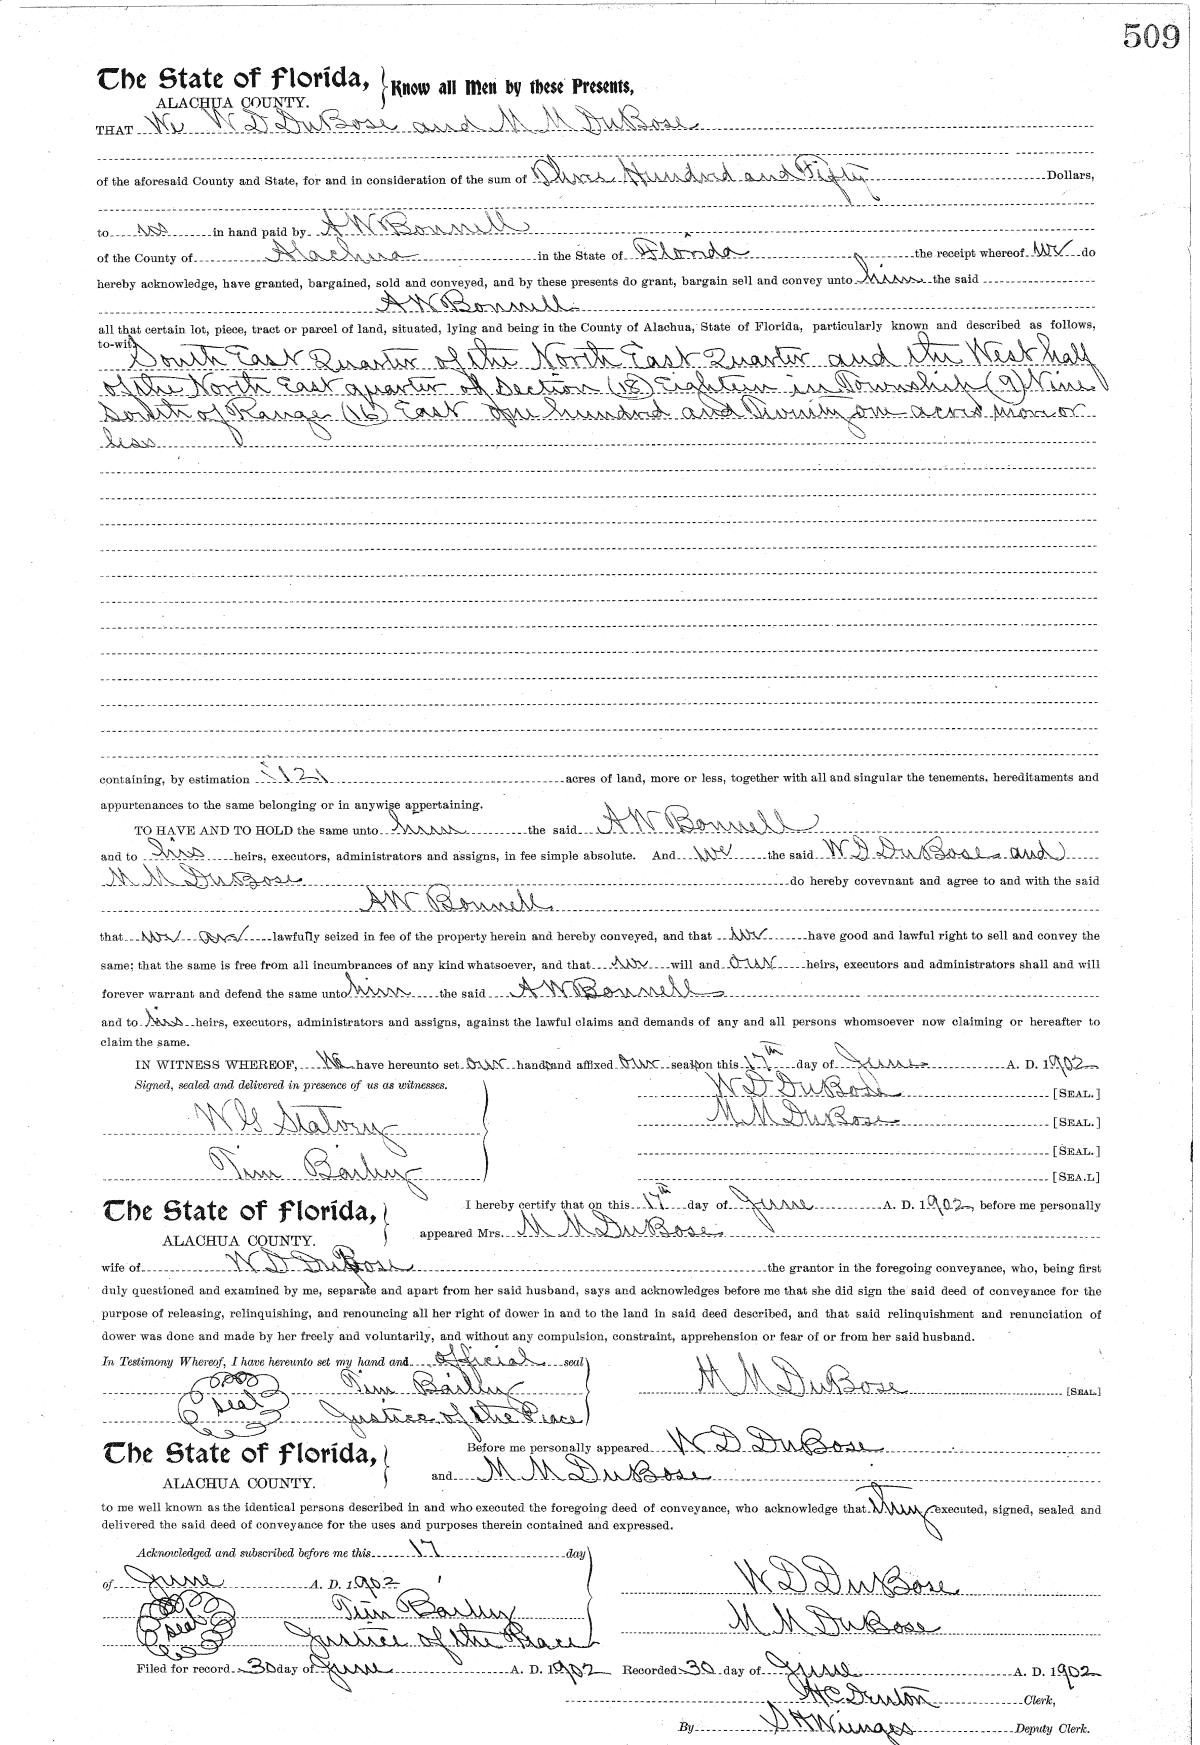 509
The State of Florida, Know all Men by these Presents,
ALACHUA COUNTY.
THAT We W D DuBose and M M DuBose
of the aforesaid County and State, for and in consideration of the sum of Three Hundred and Fifty Dollars,
to us in hand paid by A W Bonnell
of the County of Alachua in the State of Florida the receipt whereof we do
hereby acknowledge, have granted, bargained, sold and conveyed, and by these presents do grant, bargain sell and convey unto him the said
A W Bonnell
all that certain lot, piece, tract or parcel of land, situated, lying and being in the County of Alachua, State of Florida, particularly known and described as follows,
to-wit:
South East Quarter of the North East Quarter and the West half
of the North East quarter of Section (18) Eighteen in Township (9) Nine
South of Range (16) East One hundred and Twenty one acres more or
less
containing, by estimation 121 acres of land, more or less, together with all and singular the tenements, hereditaments and
appurtenances to the same belonging or in anywise appertaining.
TO HAVE AND TO HOLD the same unto him the said A W Bonnell
and to his heirs, executors, administrators and assigns, in fee simple absolute. And we the said W D DuBose and
M M DuBose do hereby covevnant and agree to and with the said
A W Bonnell
that we are lawfully seized in fee of the property herein and hereby conveyed, and that we have good and lawful right to sell and convey the
same; that the same is free from all incumbrances of any kind whatsoever, and that we will and our heirs, executors and administrators shall and will
forever warrant and defend the same unto him the said A W Bonnell
and to his heirs, executors, administrators and assigns, against the lawful claims and demands of any and all persons whomsoever now claiming or hereafter to
claim the same.
IN WITNESS WHEREOF, We have hereunto set our hands and affixed our seals on this 17th day of June A. D. 1902
Signed, sealed and delivered in presence of us as witnesses.
W D DuBose [SEAL.]
W G M M DuBose [SEAL.]
[SEAL.]
Tim Bailey [SEA.L]
The State of Florida, I hereby certify that on this 17th day of June A. D. 1902, before me personally
ALACHUA COUNTY. appeared Mrs. M M DuBose
wife of W D DuBose the grantor in the foregoing conveyance, who, being first
duly questioned and examined by me, separate and apart from her said husband, says and acknowledges before me that she did sign the said deed of conveyance for the
purpose of releasing, relinquishing, and renouncing all her right of dower in and to the land in said deed described, and that said relinquishment and renunciation of
dower was done and made by her freely and voluntarily, and without any compulsion, constraint, apprehension or fear of or from her said husband.
In Testimony Whereof, I have hereunto set my hand and official seal
Tim Bailey M M DuBose [SEAL]
seal Justice of the Peace
The State of Florida, Before me personally appeared W D DuBose
ALACHUA COUNTY. and M M DuBose
to me well known as the identical persons described in and who executed the foregoing deed of conveyance, who acknowledge that they executed, signed, sealed and
delivered the said deed of conveyance for the uses and purposes therein contained and expressed.
Acknowledged and subscribed before me this 17 day
of June A. D. 1902 W D DuBose
seal Tim Bailey M M DuBose
Justice of the Peace
Filed for record 30 day of June A. D. 1902 Recorded 30 day of June A. D. 1902
H C Denton Clerk,
By S H Wienges Deputy Clerk.